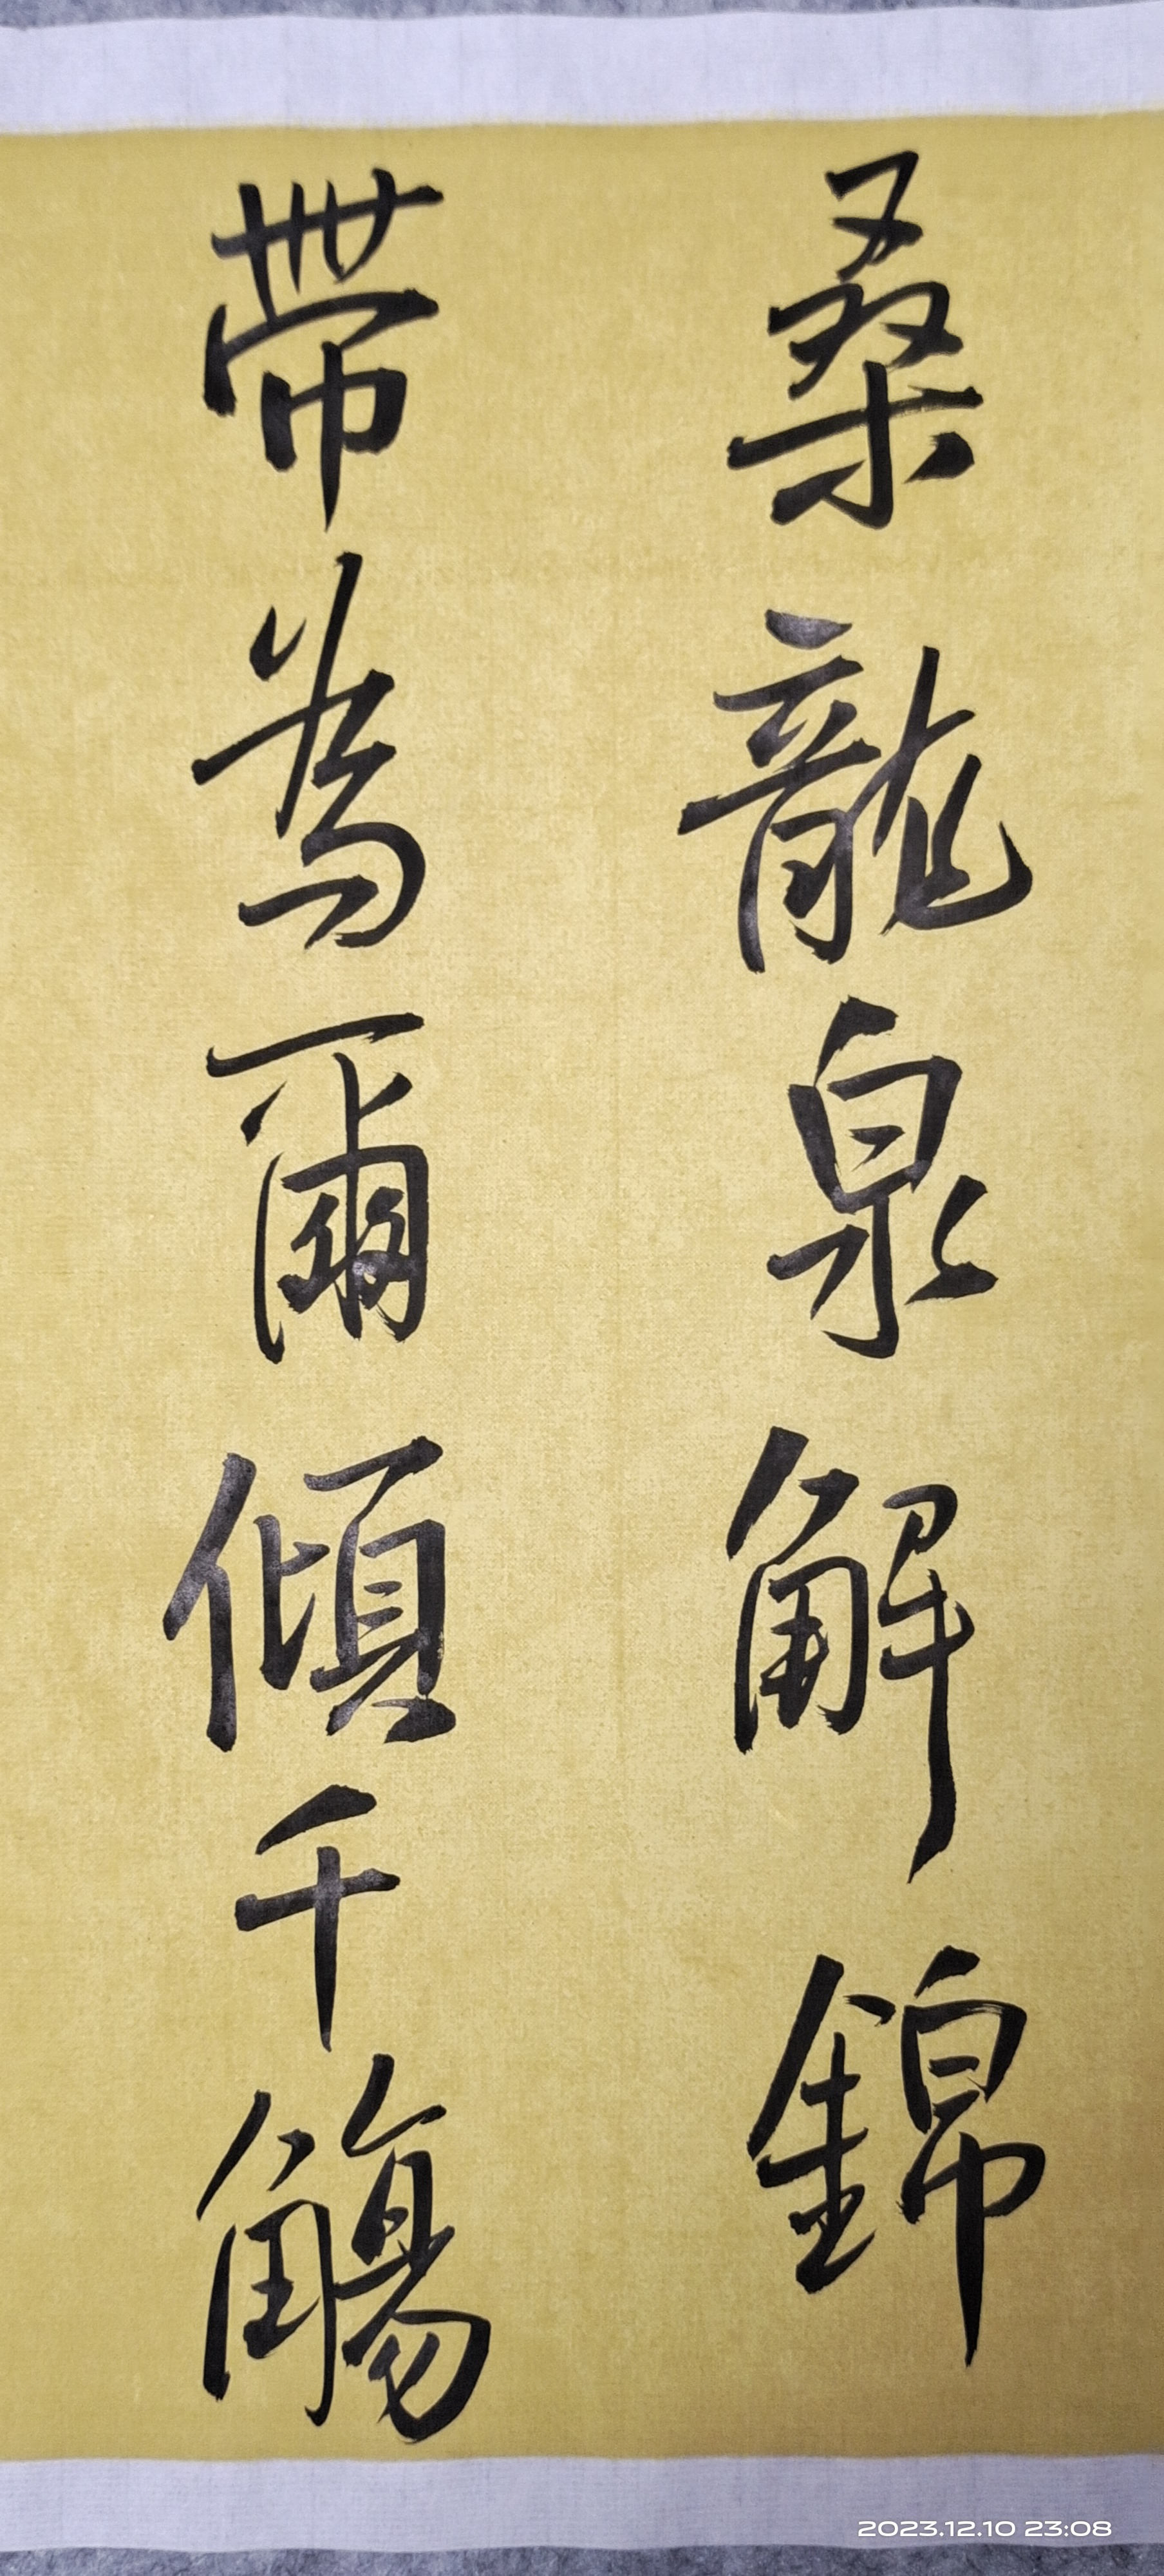 桑龍泉解錦
帶為爾傾千觴
2023.12.10 23:08